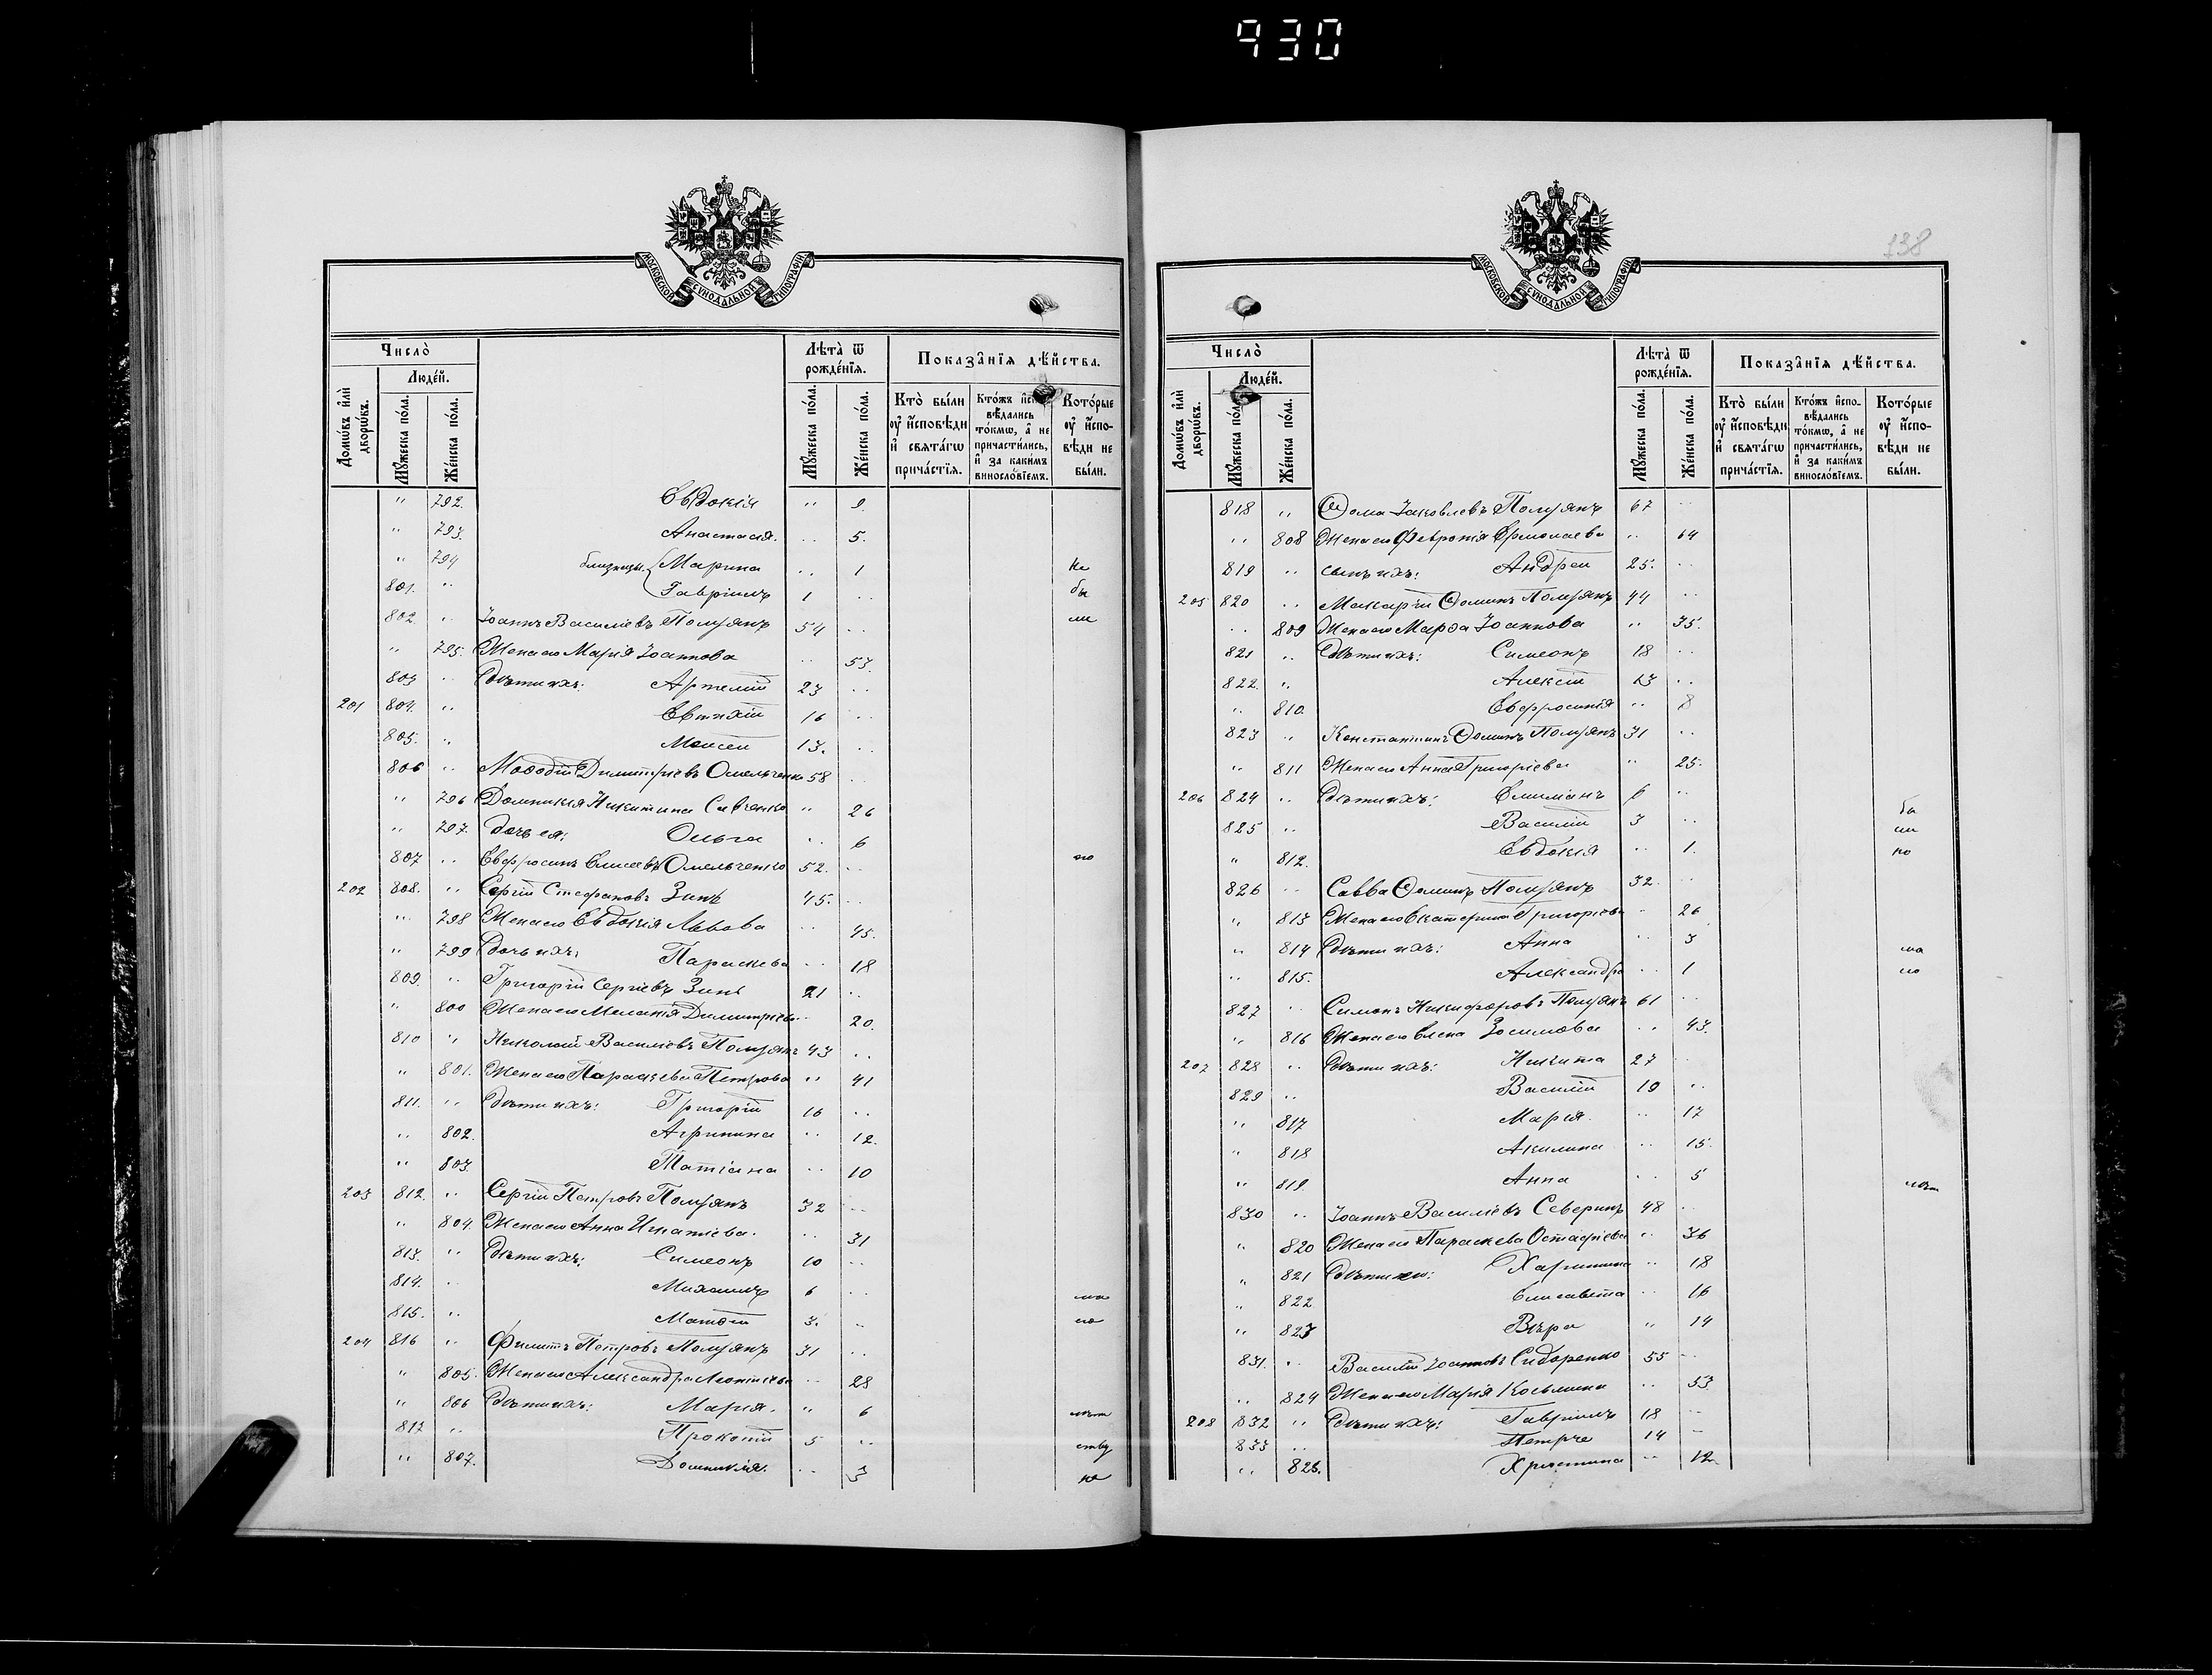 930
МОСКОВСКОЙ СУНОДАЛЬНОЙ ТИПОГРАФІИ
Число̀
Людей.
Домѡвъ и҆лѝ дворѡвъ.
Мꙋжеска по́ла.
Же́нска по́ла.
Лѣта̀ ѿ рожде́нїѧ.
Мꙋжеска по́ла.
Же́нска по́ла.
Показа̑нїѧ дѣ́йства.
Кто̀ бы́ли ᲂу҆ и҆сповѣди и҆ свѧта́гѡ прича́стїѧ.
Кто́жъ и҆спо-вѣдались то́кмѡ, а҆ не причасти́лись, и҆ за каки́мъ винословїемъ.
Кото́рые ᲂу҆ и҆спо-вѣди не бы́ли.
" 792. Евдокія " 9.
" 793. Анастасія. " 5.
" 794 близнецы. Марина " 1 не
801. " Гавріилъ 1 " бы
802. " Іоаннъ Василіевъ Полуянъ 54 " ли
" 795. Жена его Марія Іоаннова " 53.
803 " Дѣти ихъ: Артемій 23 "
201 804. " Евтихій 16 "
805. " Моисей 13. "
806 " Меѳодій Димитріевъ Омельченко 58 "
" 796 Домникія Никитина Савченко " 26
" 797. дочь ея: Ольга " 6
807 " Евфросинъ Елисеевъ Омельченко 52. " но
202 808. " Сергій Стефановъ Зинь 45. "
" 798 Жена его Евдокія Львова " 45.
" 799 дочь ихъ: Параскева " 18
809. " Григорій Сергіевъ Зинь 21 "
" 800 Жена его Меланія Димитріева " 20.
810 " Николай Василіевъ Полуянъ 43 "
" 801. Жена его Параскева Петрова " 41
811. " Дѣти ихъ: Григорій 16 "
" 802. Агрипина " 12.
" 803. Татіана " 10
203 812. " Сергій Петровъ Полуянъ 32 "
" 804. Жена его Анна Игнатіева. " 31
813. " Дѣти ихъ: Симеонъ 10 "
814. " Михаилъ 6 " ма
815. " Матѳій 3. " ло
204 816 " Филиппъ Петровъ Полуянъ 31 "
" 805. Жена его Александра Леонтіева " 28
" 806 Дѣти ихъ: Марія. " 6 лѣт
817 " Прокопій 5 " ству
" 807. Домникія. " 3 но
138
МОСКОВСКОЙ СУНОДАЛЬНОЙ ТИПОГРАФІИ
Число̀
Людей.
Домѡвъ и҆лѝ дворѡвъ.
Мꙋжеска по́ла.
Же́нска по́ла.
Лѣта̀ ѿ рожде́нїѧ.
Мꙋжеска по́ла.
Же́нска по́ла.
Показа̑нїѧ дѣ́йства.
Кто̀ бы́ли ᲂу҆ и҆сповѣди и҆ свѧта́гѡ прича́стїѧ.
Кто́жъ и҆спо-вѣдались то́кмѡ, а҆ не причасти́лись, и҆ за каки́мъ винословїемъ.
Кото́рые ᲂу҆ и҆спо-вѣди не бы́ли.
818 " Ѳома Іаковлевъ Полуянъ 67 "
" 808 Жена его Февронія Ермолаева " 64
819 " сынъ ихъ: Андрей 25. "
205 820 " Макарій Ѳоминъ Полуянъ 44 "
" 809 Жена его Марѳа Іоаннова " 35.
821 " Дѣти ихъ: Симеонъ 18 "
822. " Алексій 13 "
" 810. Евфросинія " 8
823 " Константинъ Ѳоминъ Полуянъ 31 "
" 811 Жена его Анна Григоріева " 25.
206 824 " Дѣти ихъ: Емиліанъ 6 " бы
825 " Василій 3 " ли
" 812. Евдокія " 1. но
826 " Савва Ѳоминъ Полуянъ 32. "
" 813 Жена его Екатерина Григоріева " 26
" 814 Дѣти ихъ: Анна " 3 ма
" 815. Александра " 1 ло
827 " Симонъ Никифоровъ Полуянъ 61 "
" 816 Жена его Елена Зосимова " 43.
207 828 " Дѣти ихъ: Никита 27 "
829 " Василій 19 "
" 817 Марія. " 17
" 818 Акилина " 15.
" 819. Анна " 5 лѣт
830 " Іоаннъ Василіевъ Северинъ 48 "
" 820 Жена его Параскева Остафіева " 36
" 821 Дѣти его: Харитина " 18
" 822 Елисавета " 16
" 823 Вѣра " 14
831. " Василій Іоанновъ Сидоренко 55 "
" 824 Жена его Марія Косьмина " 53
208 832 " Дѣти ихъ: Гавріилъ 18 "
833 " Петръ 14 "
" 825. Христина " 12.